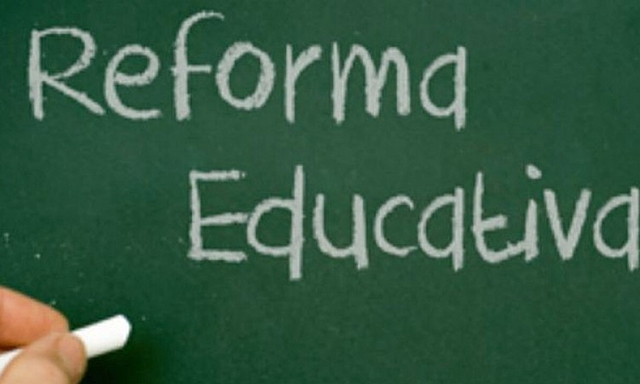 Reforma
Educativa